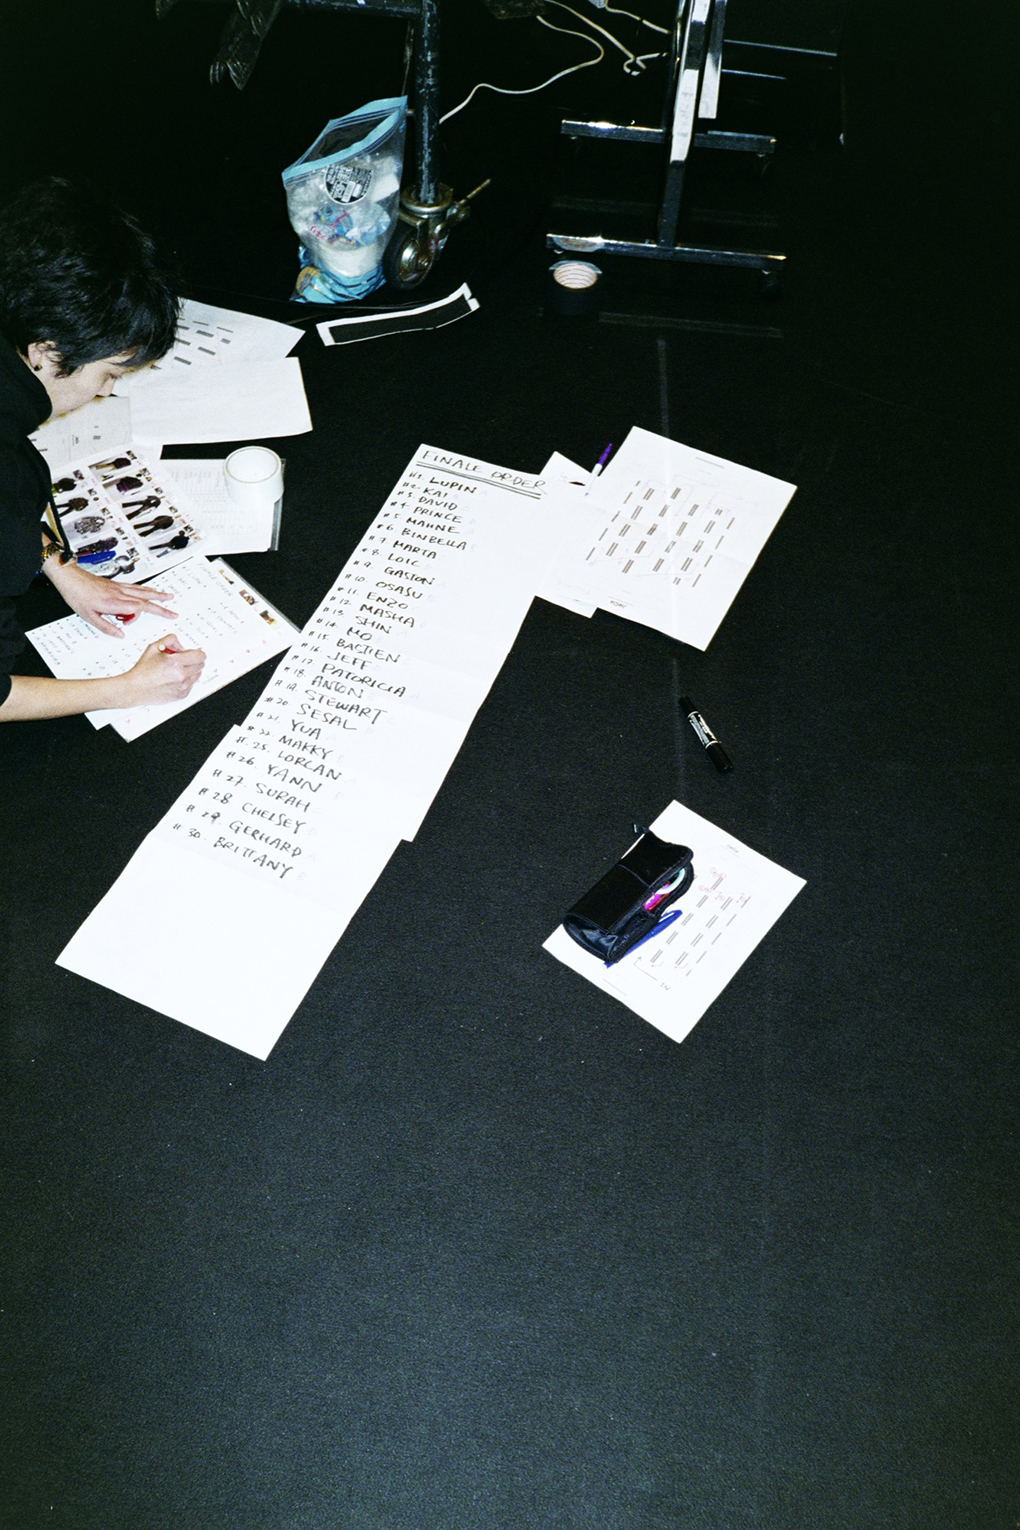 FINALE ORDER
#1. LUPIN
#2. KAI
#3. DAVID
#4. PRINCE
#5. MAHNE
#6. BINBELLA
#7. MARTA
#8. LOIC
#9. GASTON
#10. OSASU
#11. ENZO
#12. MASHA
#13. SHIN
#14. MO
#15. BASTIEN
#16. JEFF
#17. PATORICIA
#18. ANTON
#19. STEWART
#20. SESAL
#21. YUA
#22. MAKKY
#25. LORCAN
#26. YANN
#27. SURAH
#28 CHELSEY
#29. GERHARD
#30. BRITTANY